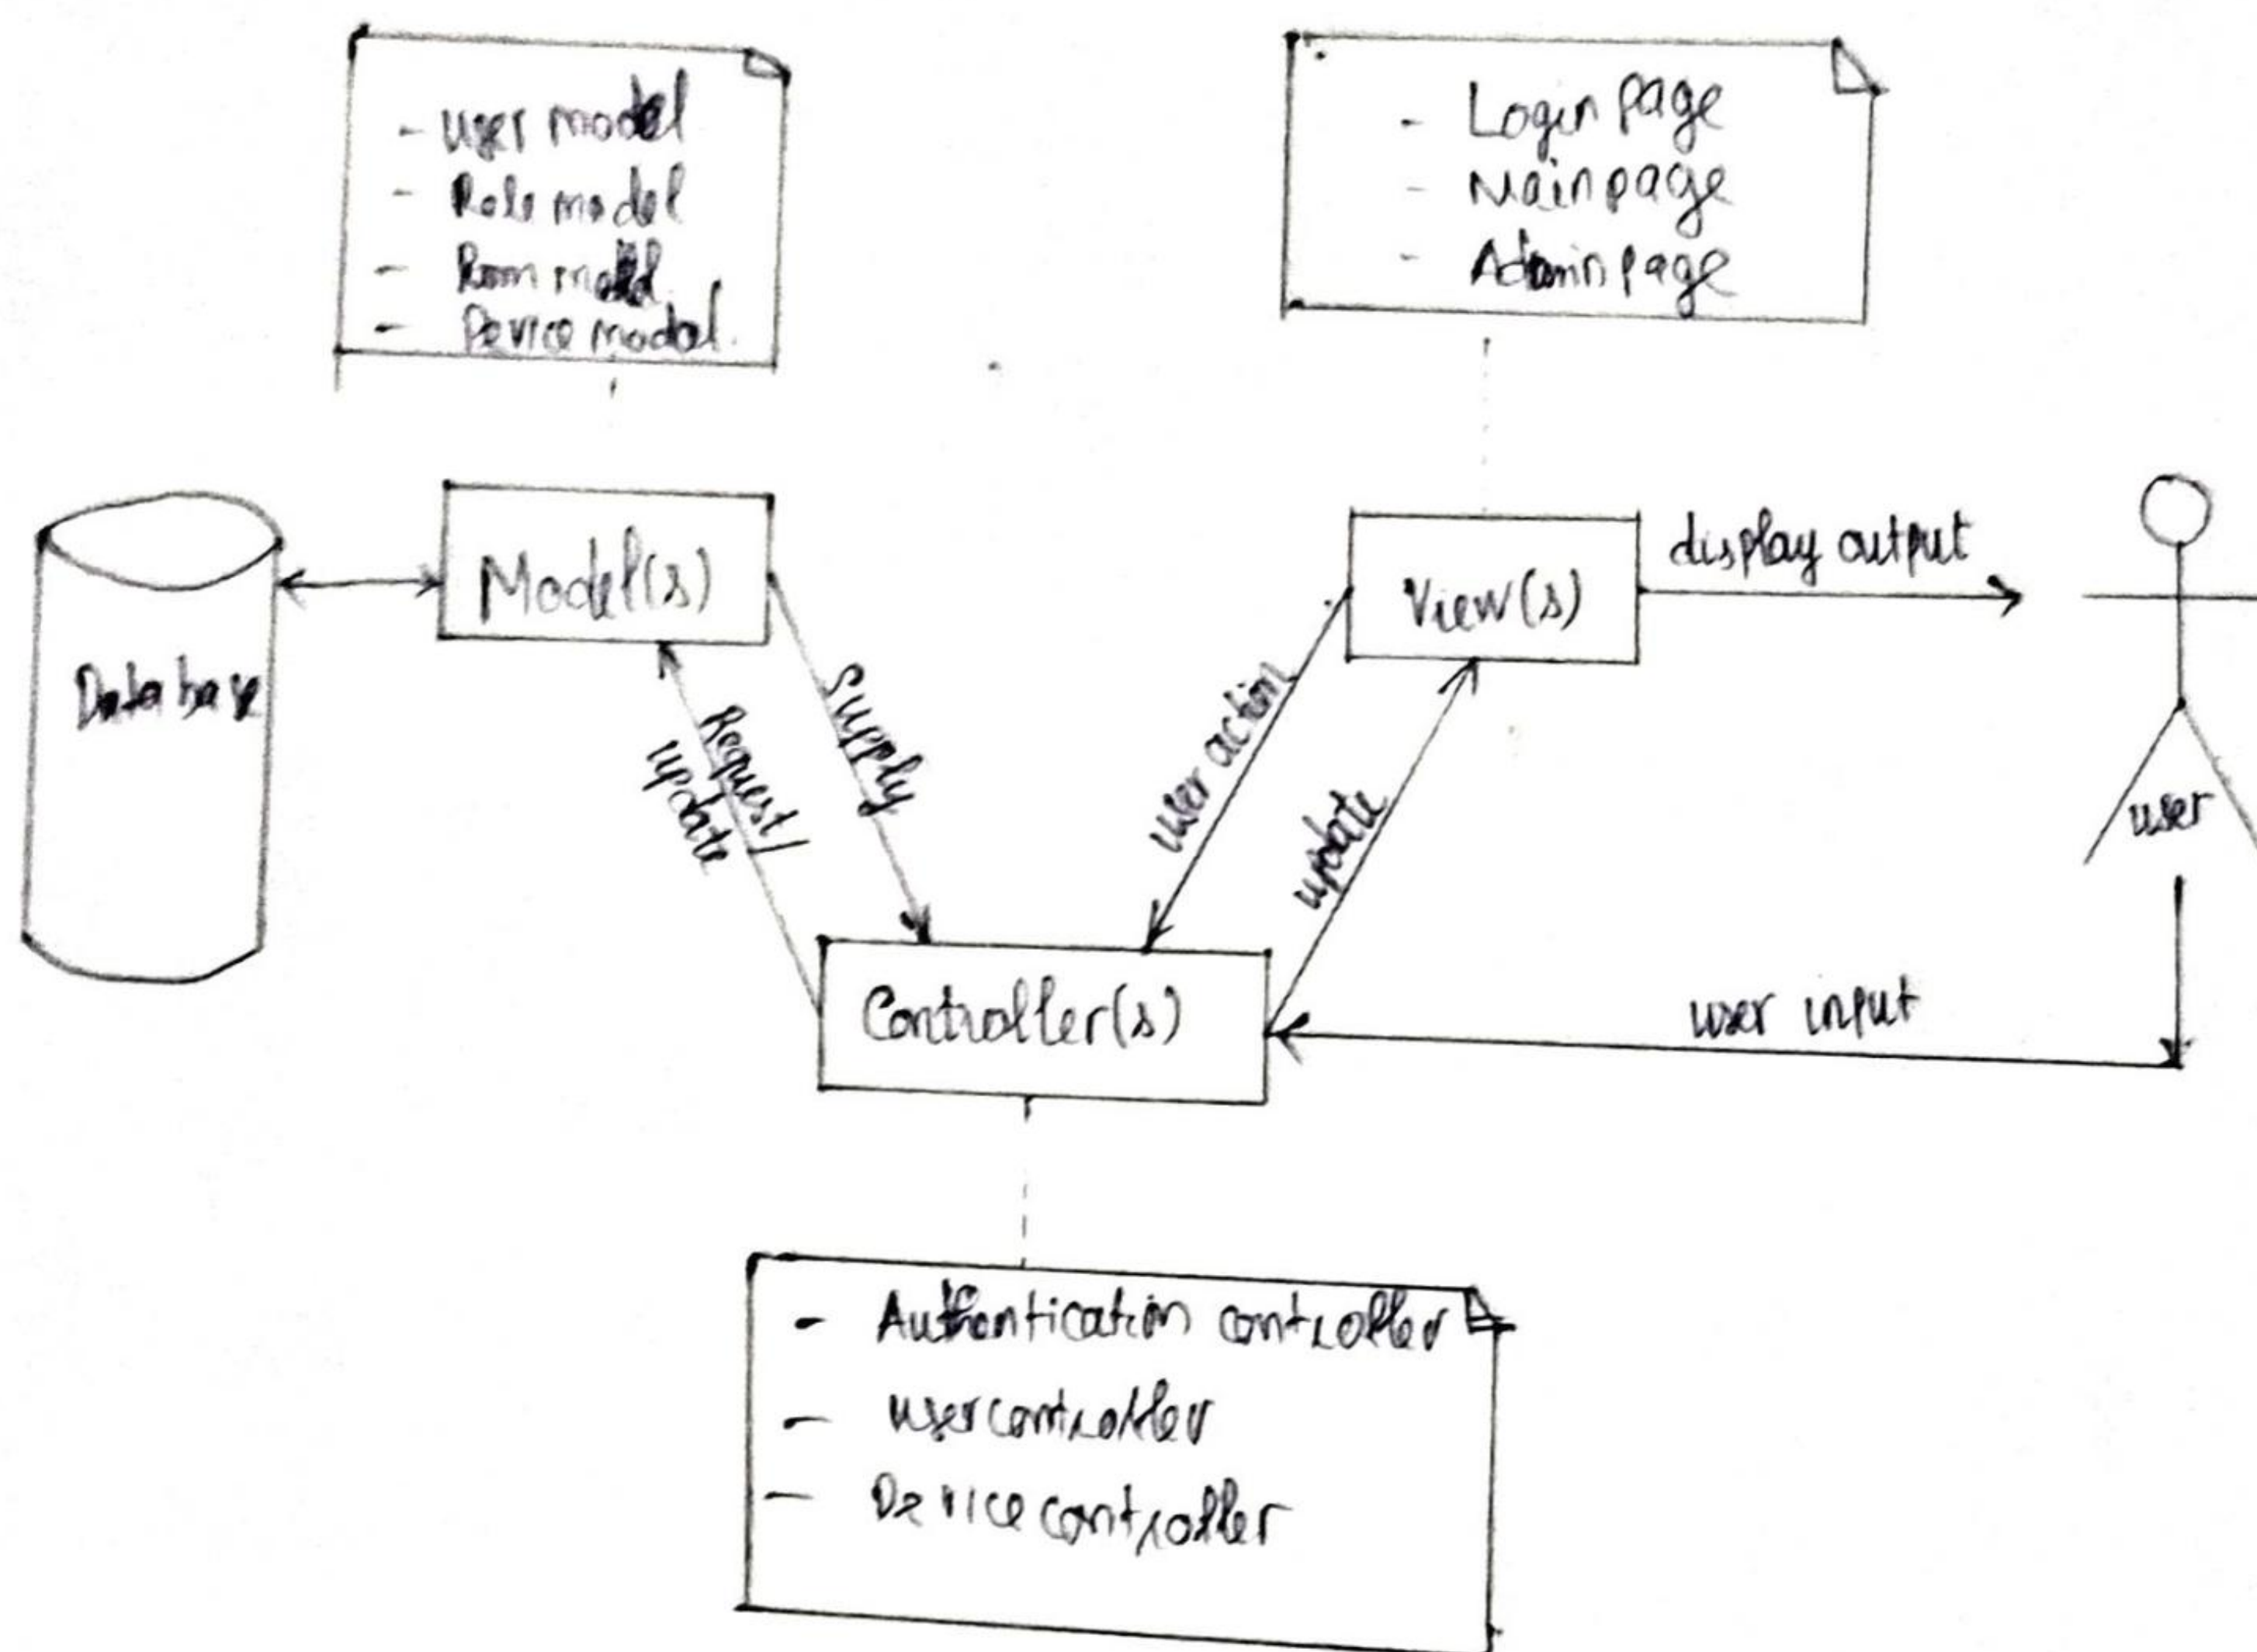 - User model
- Role model
- Room model
- Device model.
- Login page
- Main page
- Admin page
Database
Model(s)
View(s)
display output
user
Request/
update
Supply
user action
update
Controller(s)
user input
- Authentication controller
- user controller
- Device controller